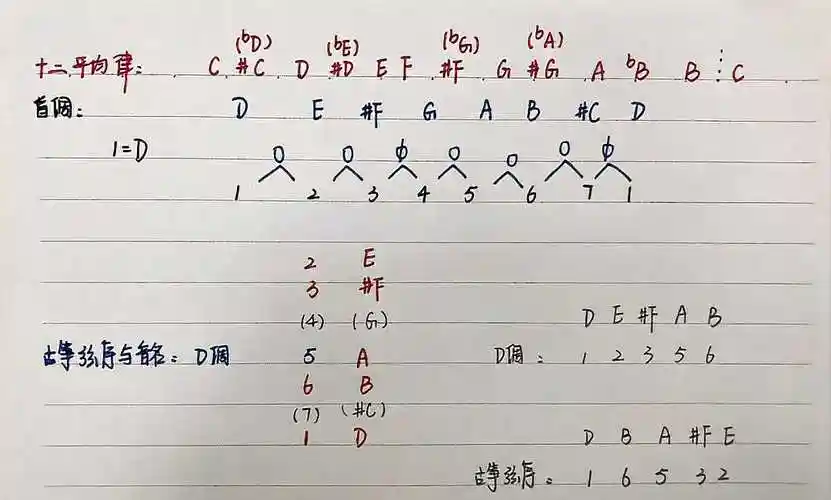 (bD) (bE) (bG) (bA)
十二平均律: C #C D #D E F #F G #G A bB B C
音阶: D E #F G A B #C D
1=D
1 2 3 4 5 6 7 1
2 E
3 #F
(4) (G)
D E #F A B
古筝弦序与音名: D调 5 A
D调: 1 2 3 5 6
6 B
(7) (#C)
1 D
D B A #F E
古筝弦序: 1 6 5 3 2